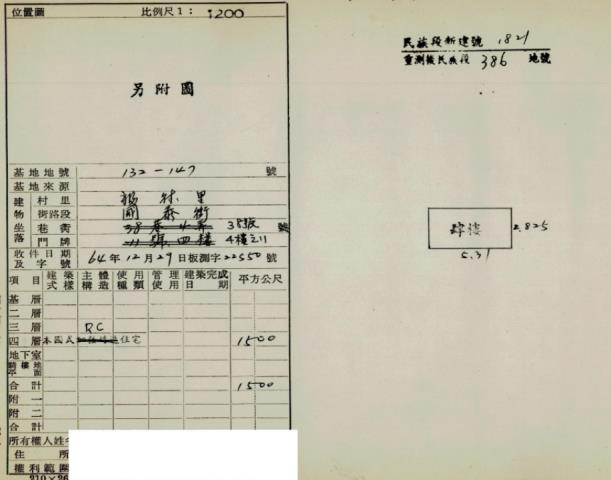 位置圖 比例尺1: 1200
另附圖
基地地號 132-147 號
基地來源
建物坐落
村里 福林里
街路段 國泰街
巷衖 38巷4弄 38號 號
門牌 11號四樓 4樓之11
收件日期及字號 64年12月29日板測字22550號
項目 建築式樣 主體構造 使用種類 管理使用 建築完成日期 平方公尺
基層
二層
三層 RC
四層 本國式 住宅 1500
地下室
騎樓地平面
合計 1500
附一
附二
合計
所有權人姓名
住所
權利範圍
210×26
民族段新建號 1821
重測後民族段 386 地號
肆樓
2.825
5.31